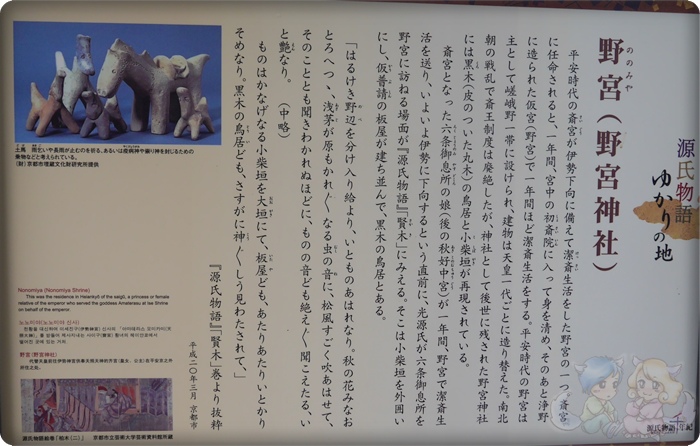 源氏物語
ゆかりの地
ののみや
野宮(野宮神社)
平安時代の斎宮が伊勢下向に備えて潔斎生活をした野宮の一つ。斎宮
に任命されると、一年間、宮中の初斎院に入って身を清め、そのあと浄野
に造られた仮宮(野宮)で一年間ほど潔斎生活をする。平安時代の野宮は
主として嵯峨野一帯に設けられ、建物は天皇一代ごとに造り替えた。南北
朝の戦乱で斎王制度は廃絶したが、神社として後世に残された野宮神社
には黒木(皮のついた丸木)の鳥居と小柴垣が再現されている。
斎宮となった六条御息所の娘(後の秋好中宮)が一年間、野宮で潔斎生
活を送り、いよいよ伊勢に下向するという直前に、光源氏が六条御息所を
野宮に訪ねる場面が『源氏物語』「賢木」にみえる。そこは小柴垣を外囲い
にし、仮普請の板屋が建ち並んで、黒木の鳥居とある。
「はるけき野辺を分け入り給より、いとものあはれなり。秋の花みなお
とろへつゝ、浅茅が原もかれ〲なる虫の音に、松風すごく吹あはせて、
そのこととも聞きわかれぬほどに、ものの音ども絶え〲聞こえたる、い
と艶なり。 (中略)
ものはかなげなる小柴垣を大垣にて、板屋ども、あたりあたりいとかり
そめなり。黒木の鳥居ども、さすがに神〲しう見わたされて、」
『源氏物語』「賢木」巻より抜粋
平成二〇年三月 京都市
土馬 雨乞いや長雨が止むのを祈る、あるいは疫病神や祟り神を封じるための
乗物などと考えられている。
(財)京都市埋蔵文化財研究所提供
Nonomiya (Nonomiya Shrine)
This was the residence in Heiankyô of the saigû, a princess or female
relative of the emperor who served the goddess Amaterasu at Ise Shrine
on behalf of the emperor.
노노미야(노노미야 신사)
野宫(野宫神社)
源氏物語絵巻「柏木(二)」 京都市立芸術大学芸術資料館所蔵
源氏物語千年紀